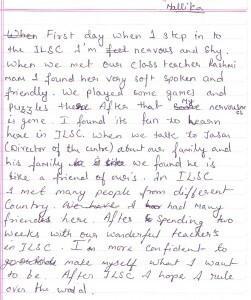 Mallika
When First day when I step in to
the ILSC I'm feel nervous and shy.
When we met our class teacher Rashmi
mam I found her very soft spoken and
friendly. We played some games and
puzzles there After that My nervousness
is gone. I found its fun to learn
here in ILSC. when we talk to Jasar
(Director of the centre) about our family and
his family we found he is
like a friend of ours. In ILSC
I met many people from different
Country. We have I had many
friends here. After spending two
weeks with our wonderful teachers
in ILSC. I'm more confident to
make myself what I want
to be. After ILSC I hope I rule
over the world.